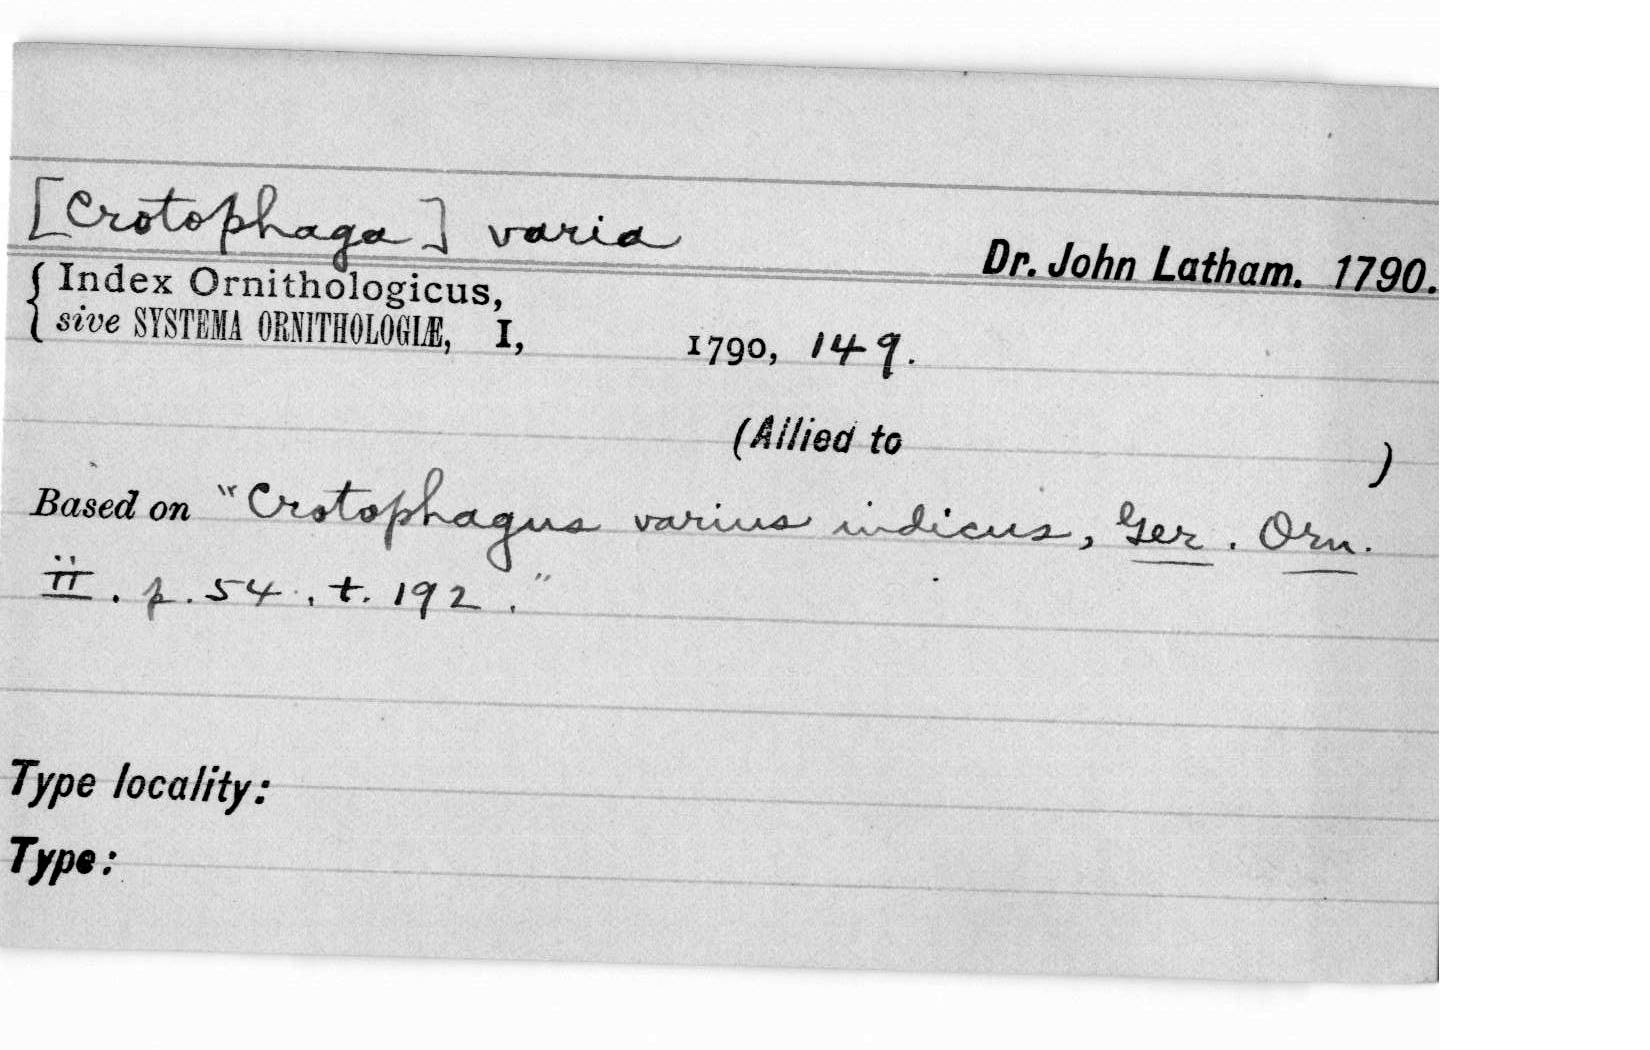 [Crotophaga] varia
Dr. John Latham. 1790.
{ Index Ornithologicus,
sive SYSTEMA ORNITHOLOGIÆ, I, 1790, 149.
(Allied to )
Based on "Crotophagus varius indicus, Ger. Orn.
ii. p. 54. t. 192."
Type locality:
Type: